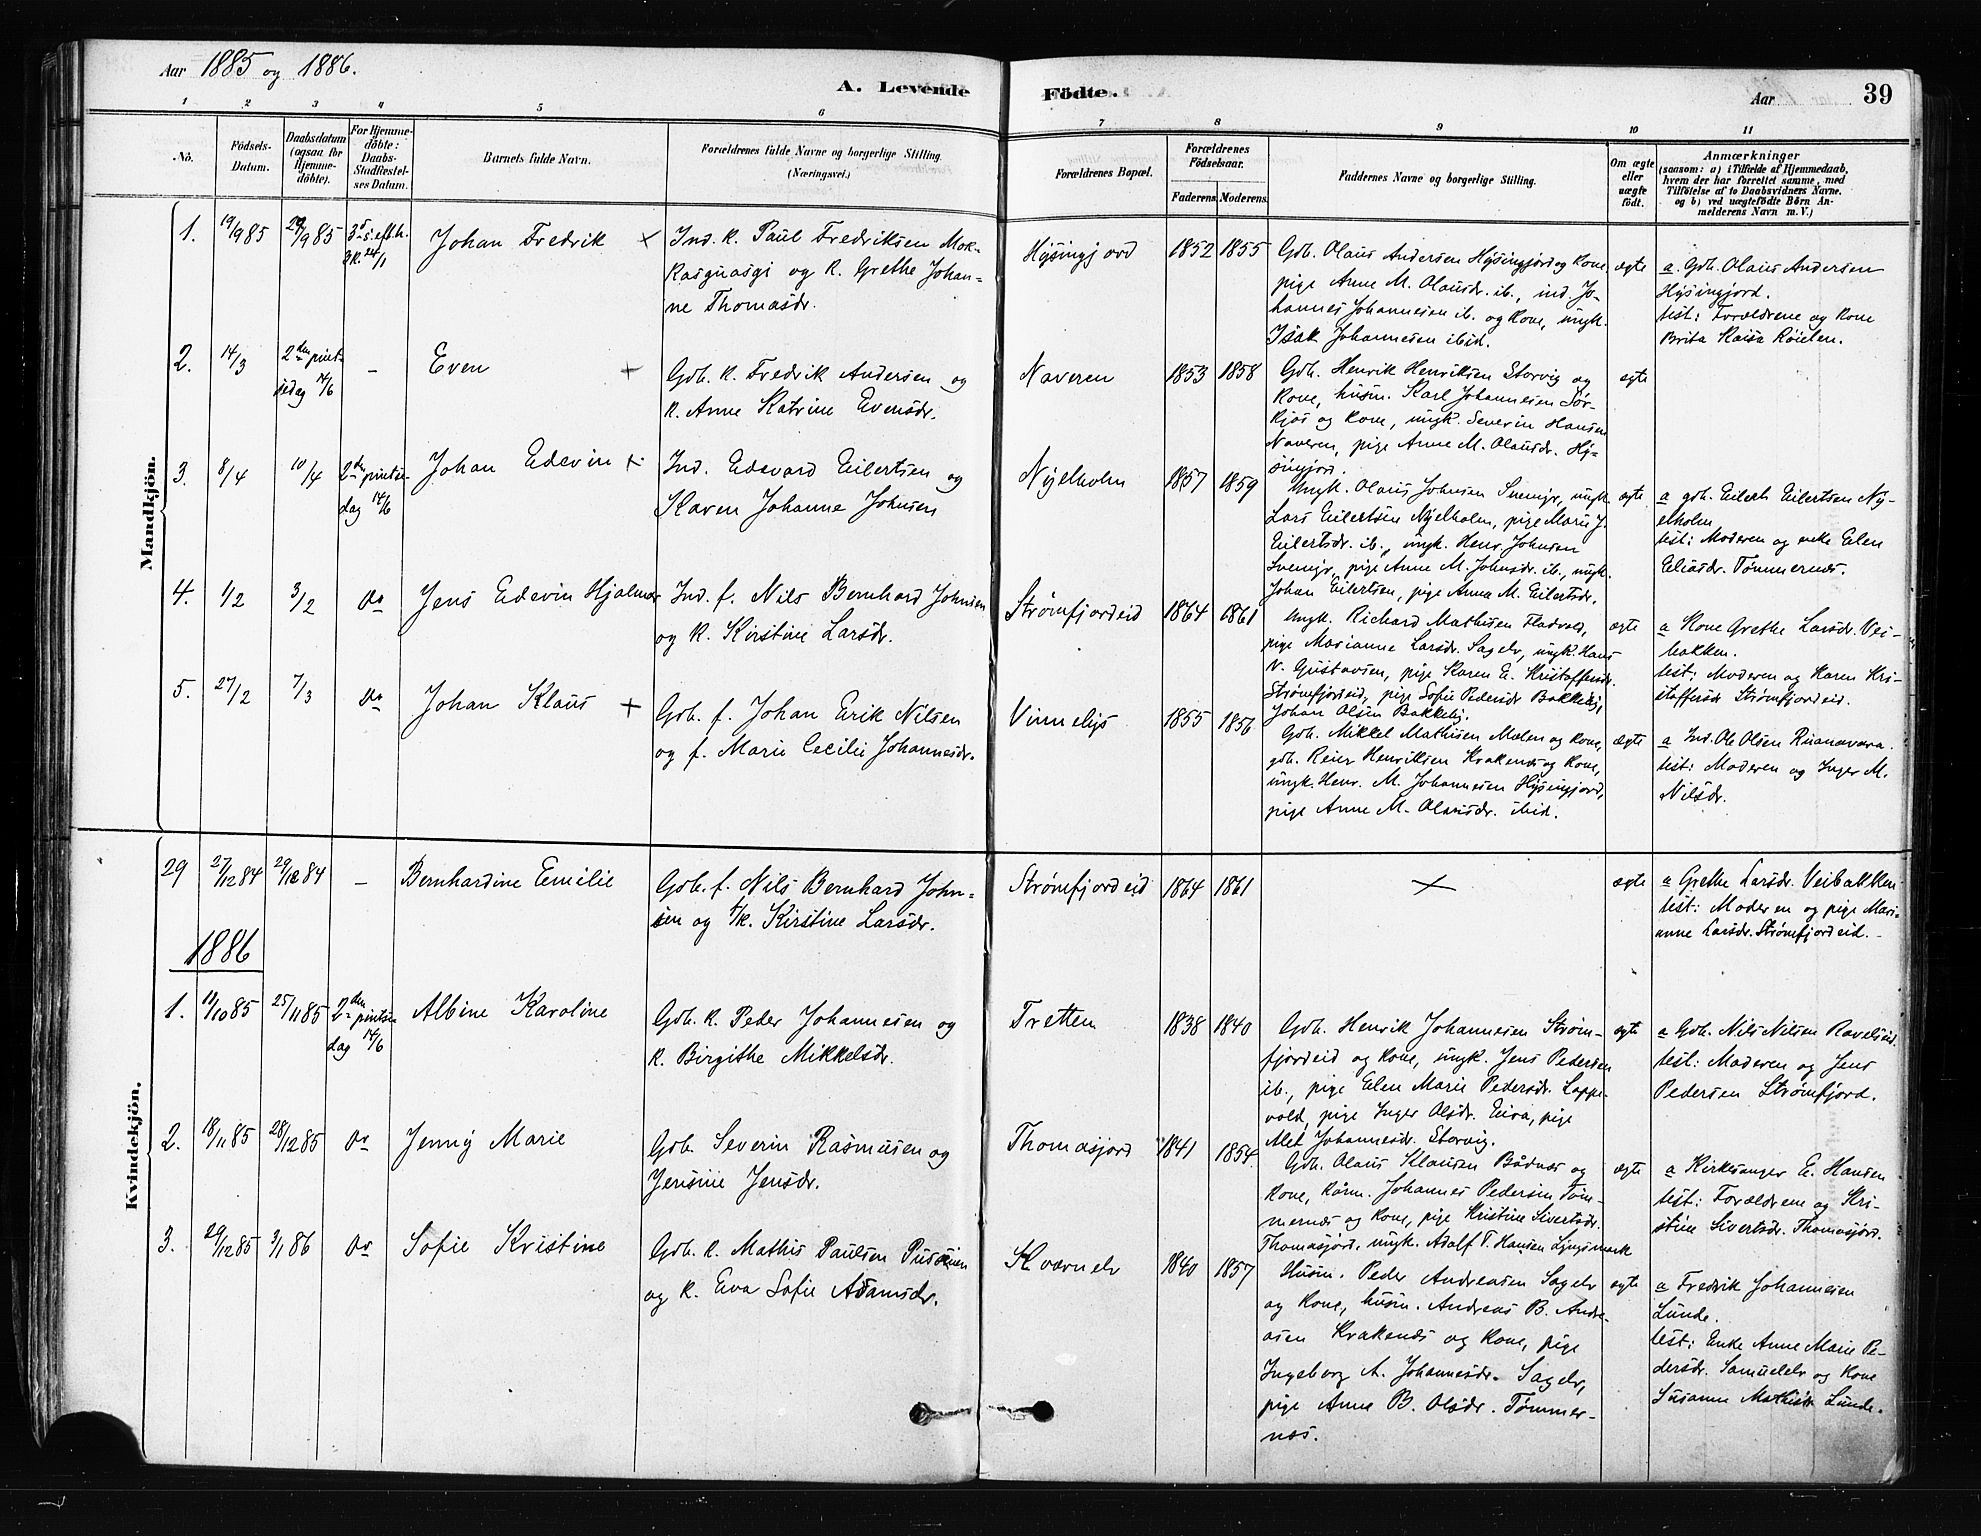 Aar 1885 og 1886.
A. Levende Födte.
Aar
39
1 2 3 4 5 6 7 8 9 10 11
Nô.
Födsels-
Datum.
Daabsdatum
(ogsaa for
Hjemme-
döbte).
For Hjemme-
döbte:
Daabs-
Stadfæstel-
ses Datum.
Barnets fulde Navn.
Forældrenes fulde Navne og borgerlige Stilling
(Næringsvei.)
Forældrenes Bopæl.
Forældrenes
Födselsaar.
Faderens. Moderens.
Faddernes Navne og borgerlige Stilling.
Om ægte
eller
uægte
födt.
Anmærkninger
(saasom: a) i Tilfælde af Hjemmedaab,
hvem der har forrettet samme, med
Tilföielse af to Daabsvidners Navne.
og b) ved uægtefödte Börn An-
melderens Navn m. V.)
Mandkjön.
1. 19/9 85 Johan Fredrik +
Ind. k. Paul Fredriksen Mok-
kasguasgi og k. Grethe Johan-
ne Thomasdr.
Hysingjord 1852 1855
Gdb. Olaus Andersen Hysingjord og kone,
pige Anne M. Olausdr. ib., ind. Jo-
hannes Johannesen ib. og kone, ungk.
Isak Johannesen ibid.
ægte
a. Gdb. Olaus Andersen
Hysingjord.
test: Forældrene og kone
Brita Kaisa
2. 14/3 2den pint-
sedag 14/6 - Even +
Gdb. k. Fredrik Andersen og
k. Anne Katrine Evensdr.
Naveren 1853 1858
Gdb. Henrik Henriksen Storvig og
kone, husm. Karl Johannesen Sør-
kjos og kone, ungk. Severin Hansen
Naveren, pige Anne M. Olausdr. Hy-
singjord.
ægte
3. 8/4 10/4 2den pintse-
dag 14/6 Johan Edevin +
Ind. Edevard Eilertsen og
Karen Johanne Johnsen
Nyelholm 1857 1859
Ungk. Olaus Johnsen Svenejr, ungk.
Lars Eilertsen Nyelholm, pige Marie J.
Eilertsdr. ib., ungk. Henr. Johnsen
Svenejr, pige Anne M. Johnsdr. ib., ungk.
Johan Eilertsen, pige Anna M. Eilertsdr.
ægte
a gdb. Eilert Eilertsen Ny-
elholm
test: Moderen og enke Elen
Eliasdr. Tømmernæs.
4. 1/2 3/2 Do Jens Edevin Hjalmar
Ind. f. Nils Bernhard Johnsen
og k. Kirstine Larsdr.
Strømfjordeid 1864 1861
Ungk. Richard Mathisen Fladvold,
pige Marianne Larsdr. Sagelv, ungk. Hans
N. Gustavsen, pige Karen E. Kristoffersdr.
Strømfjordeid, pige Sofie Pedersdr Bakkeby,
Johan Olsen Bakkeby.
ægte
a Kone Grethe Larsdr. Vei-
bakken.
test: Moderen og Karen Kri-
stoffersdr Strømfjordeid.
5. 27/2 7/3 Do Johan Klaus +
Gdb. f. Johan Erik Nilsen
og f. Marie Cecilie Johannesdr.
Vinnelys 1855 1856
Gdb. Mikkel Mathisen Mælen og kone,
gdb. Reier Henriksen Krakenes og kone,
ungk. Henr. M. Johannesen Hysingjord,
pige Anne M. Olausdr. ibid.
ægte
a Ind. Ole Olsen Ruanavara.
test: Moderen og Inger M.
Nilsdr.
Kvindekjön.
29 27/12 84 29/12 84 - Bernhardine Emilie
Gdb. f. Nils Bernhard John-
sen og f/k. Kirstine Larsdr.
Strømfjordeid 1864 1861
+
ægte
a Grethe Larsdr. Veibakken
test: Moderen og pige Mari-
anne Larsdr. Strømfjordeid.
1886
1. 25/11 85 2den pintse-
dag 14/6 Albine Karoline
Gdb. k. Peder Johannesen og
k. Birgithe Mikkelsdr.
Tretten 1838 1840
Gdb. Henrik Johannesen Strøm-
fjordeid og kone, ungk. Jens Pedersen
ib., pige Elen Marie Pedersdr. Lappe-
vold, pige Inger Olsdr. Eira, pige
Alet Johannesdr. Storvig.
ægte
a Gdb. Nils Nilsen Ravelseid.
test: Moderen og Jens
Pedersen Strømfjord.
2. 18/11 85 28/12 85 Do Jenny Marie
Gdb. Severin Rasmusen og
Jensine Jensdr.
Thomasjord 1841 1854.
Gdb. Olaus Klausen Bådnes og
kone, kårm. Johannes Pedersen Tøm-
mernæs og kone, pige Kristine Sivertsdr.
Thomasjord, ungk. Adolf T. Hansen Lyngsmark
ægte
a Kirkesanger E. Hansen
test: Forældrene og Kri-
stine Sivertsdr. Thomasjord.
3. 29/12 85 3/1 86 Do Sofie Kristine
Gdb. k. Mathis Paulsen
og k. Eva Sofie Adamsdr.
Kværnelv 1840 1857
Husm. Peder Andreasen Sagelv
og kone, husm. Andreas B. Andre-
asen Krakenes og kone, pige
Ingeborg A. Johannesdr. Sagelv,
pige Anne B. Olsdr. Tømmer-
næs.
ægte
a Fredrik Johannesen
Lunde.
test: Enke Anne Marie Pe-
dersdr. Samuelelv og kone
Susanne Mathisdr Lunde.